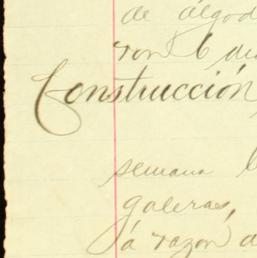 de algod
ron 6 di
Construcción
semana l
galeras,
á razon d